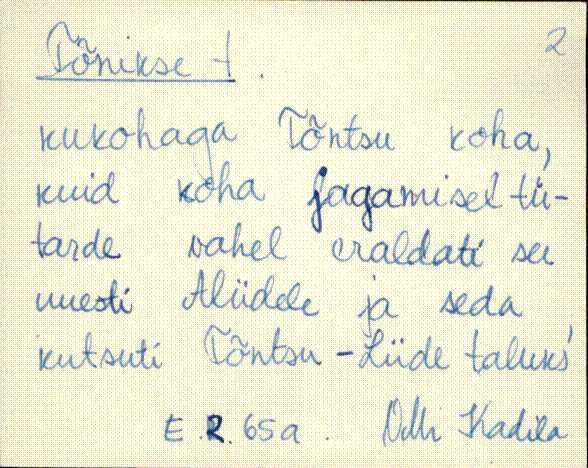 2
Tõnikse t.
kukohaga Tõntsu koha,
kuid koha jagamisel tü-
tarde vahel eraldati see
uuesti Aliidele ja seda
kutsuti Tõntsu-Liide taluks
E.R. 65a. Olli Kadila